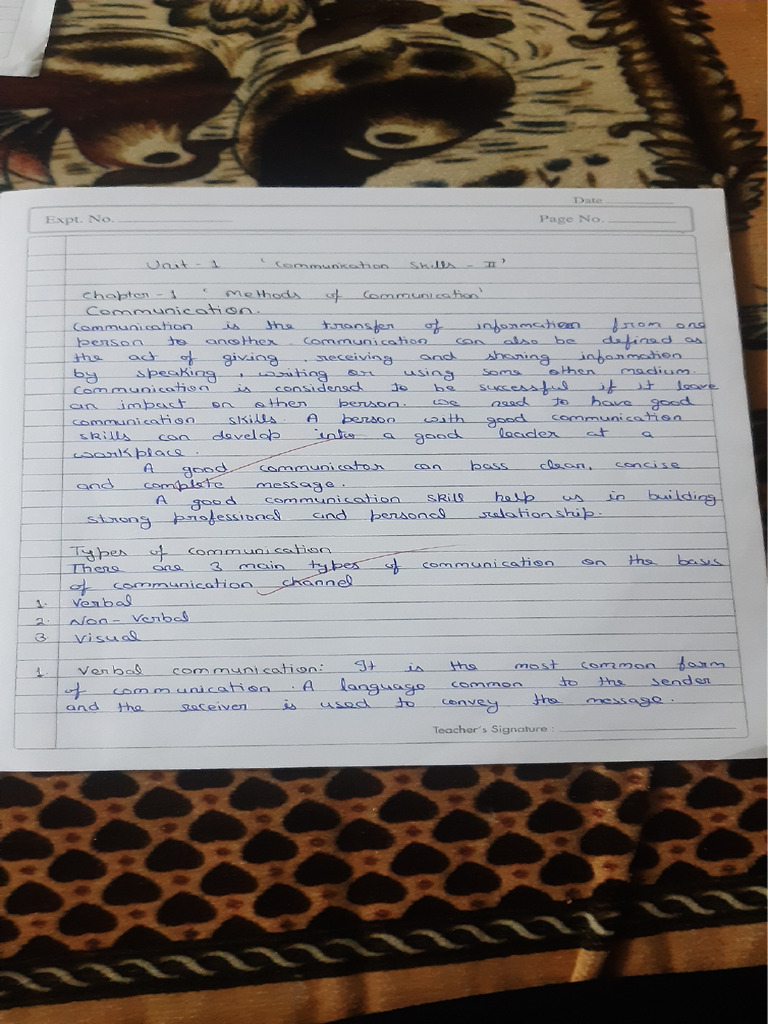 Date
Expt. No.
Page No.
Unit - 1 'Communication Skills - II'
Chapter - 1 'Methods of Communication'
Communication.
Communication is the transfer of information from one
person to another. Communication can also be defined as
the act of giving, receiving and sharing information
by speaking, writing or using some other medium.
Communication is considered to be successful if it leave
an impact on other person. We need to have good
communication skills. A person with good communication
skills can develop into a good leader at a
workplace.
A good communicator can pass clean, concise
and complete message.
A good communication skill help us in building
strong professional and personal relationship.
Types of communication
There are 3 main types of communication on the basis
of communication channel
1. Verbal
2. Non - Verbal
3. Visual
1. Verbal communication: It is the most common form
of communication. A language common to the sender
and the receiver is used to convey the message.
Teacher's Signature :